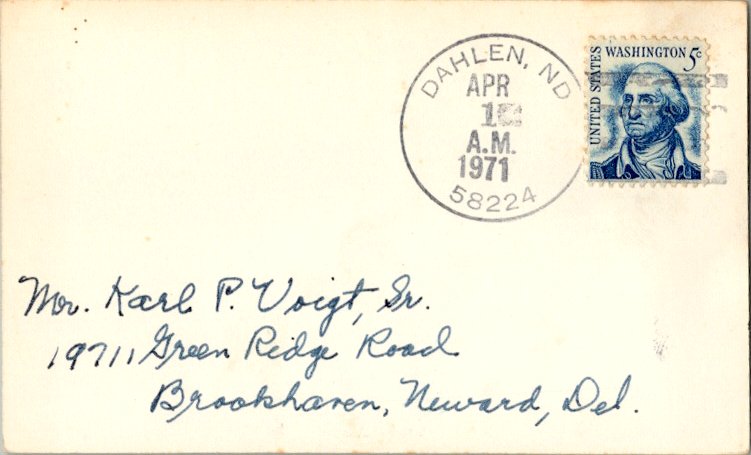 DAHLEN, ND
APR
A.M.
1971
58224
UNITED STATES
WASHINGTON 5c
Mr. Karl P. Voigt, Sr.
19711 Green Ridge Road
Brookhaven, Neward, Del.